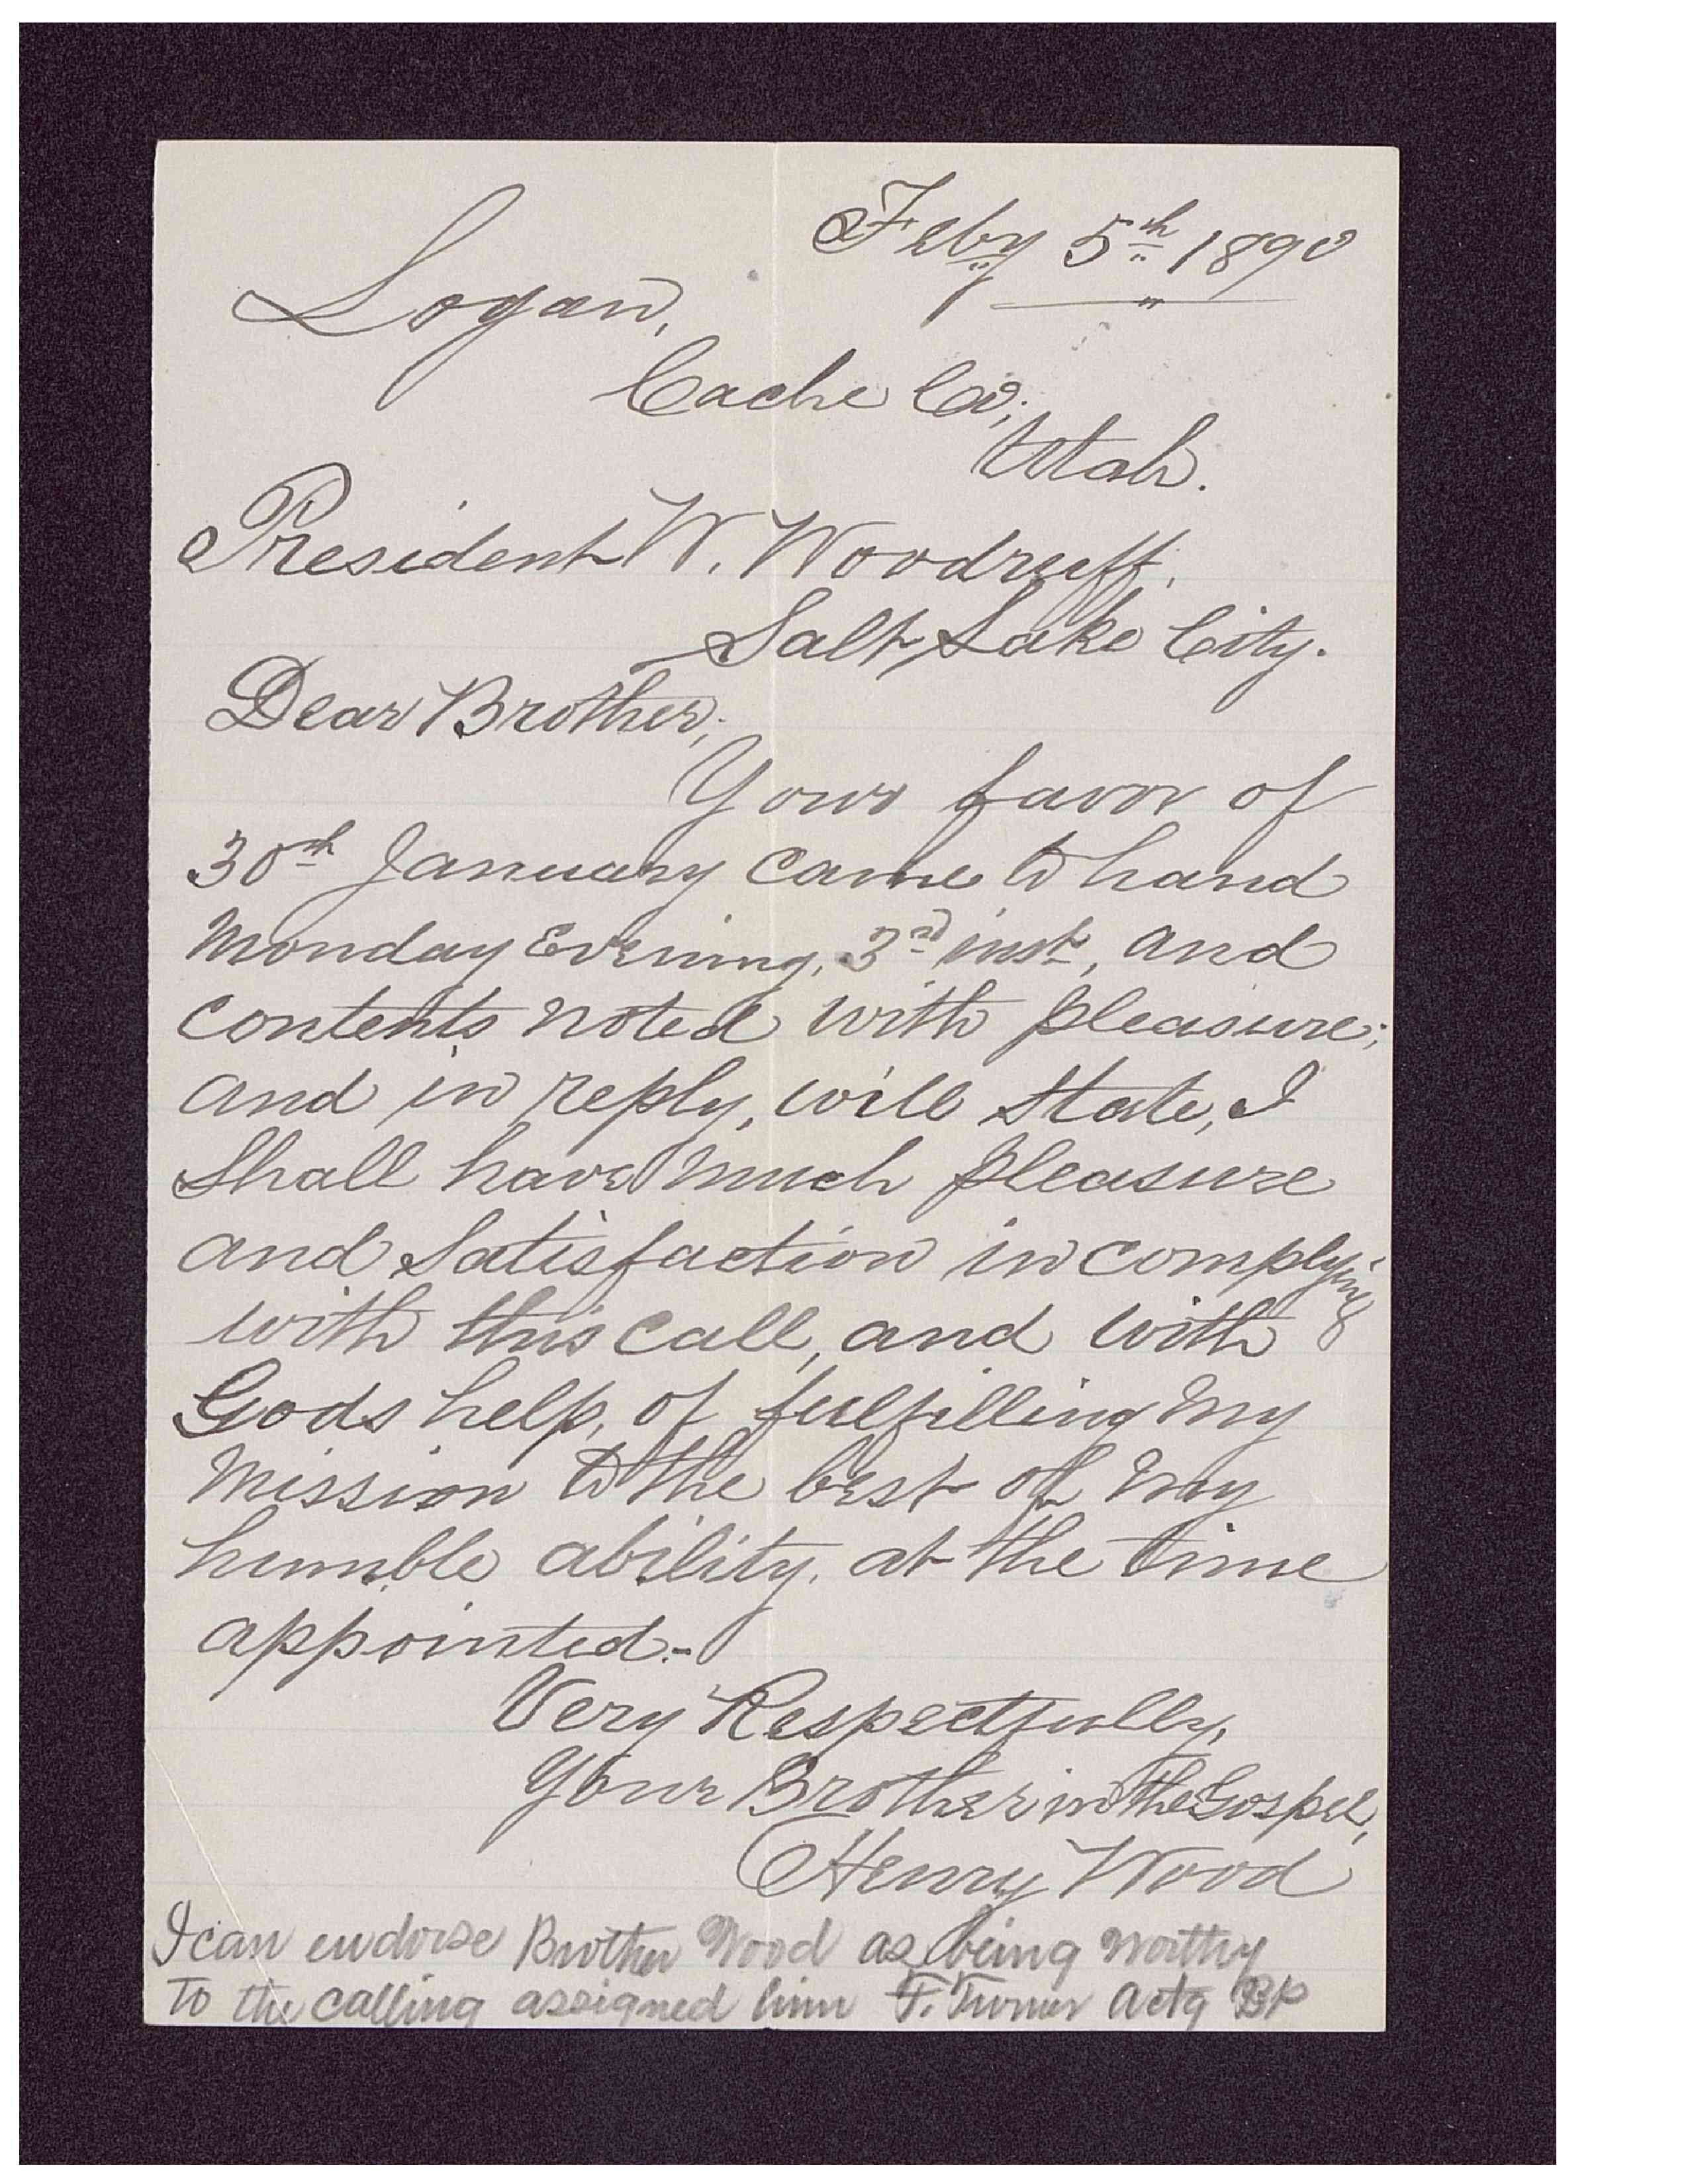 Feby 5th 1890
Logan,
Cache Co;
Utah.
President W. Woodruff.
Salt Lake City.
Dear Brother;
Your favor of
30th January came to hand
Monday Evening, 3rd inst, and
contents noted with pleasure;
and in reply, will state, I
Shall have much pleasure
and Satisfaction in complying
with this call, and with
Gods help, of fulfilling my
mission to the best of my
humble ability, at the time
appointed.-
Very Respectfully,
Your Brother in the Gospel,
Henry Wood
I can endorse Brother Wood as being worthy
To the calling assigned him F. Turner Actg BP